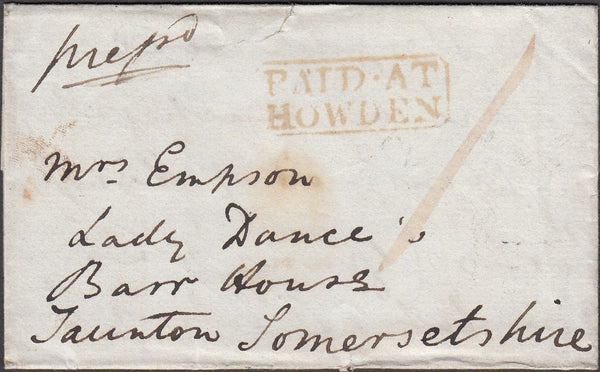 prepd
PAID·AT
HOWDEN
Mrs Empson
Lady Dance's
Barr House
Taunton Somersetshire